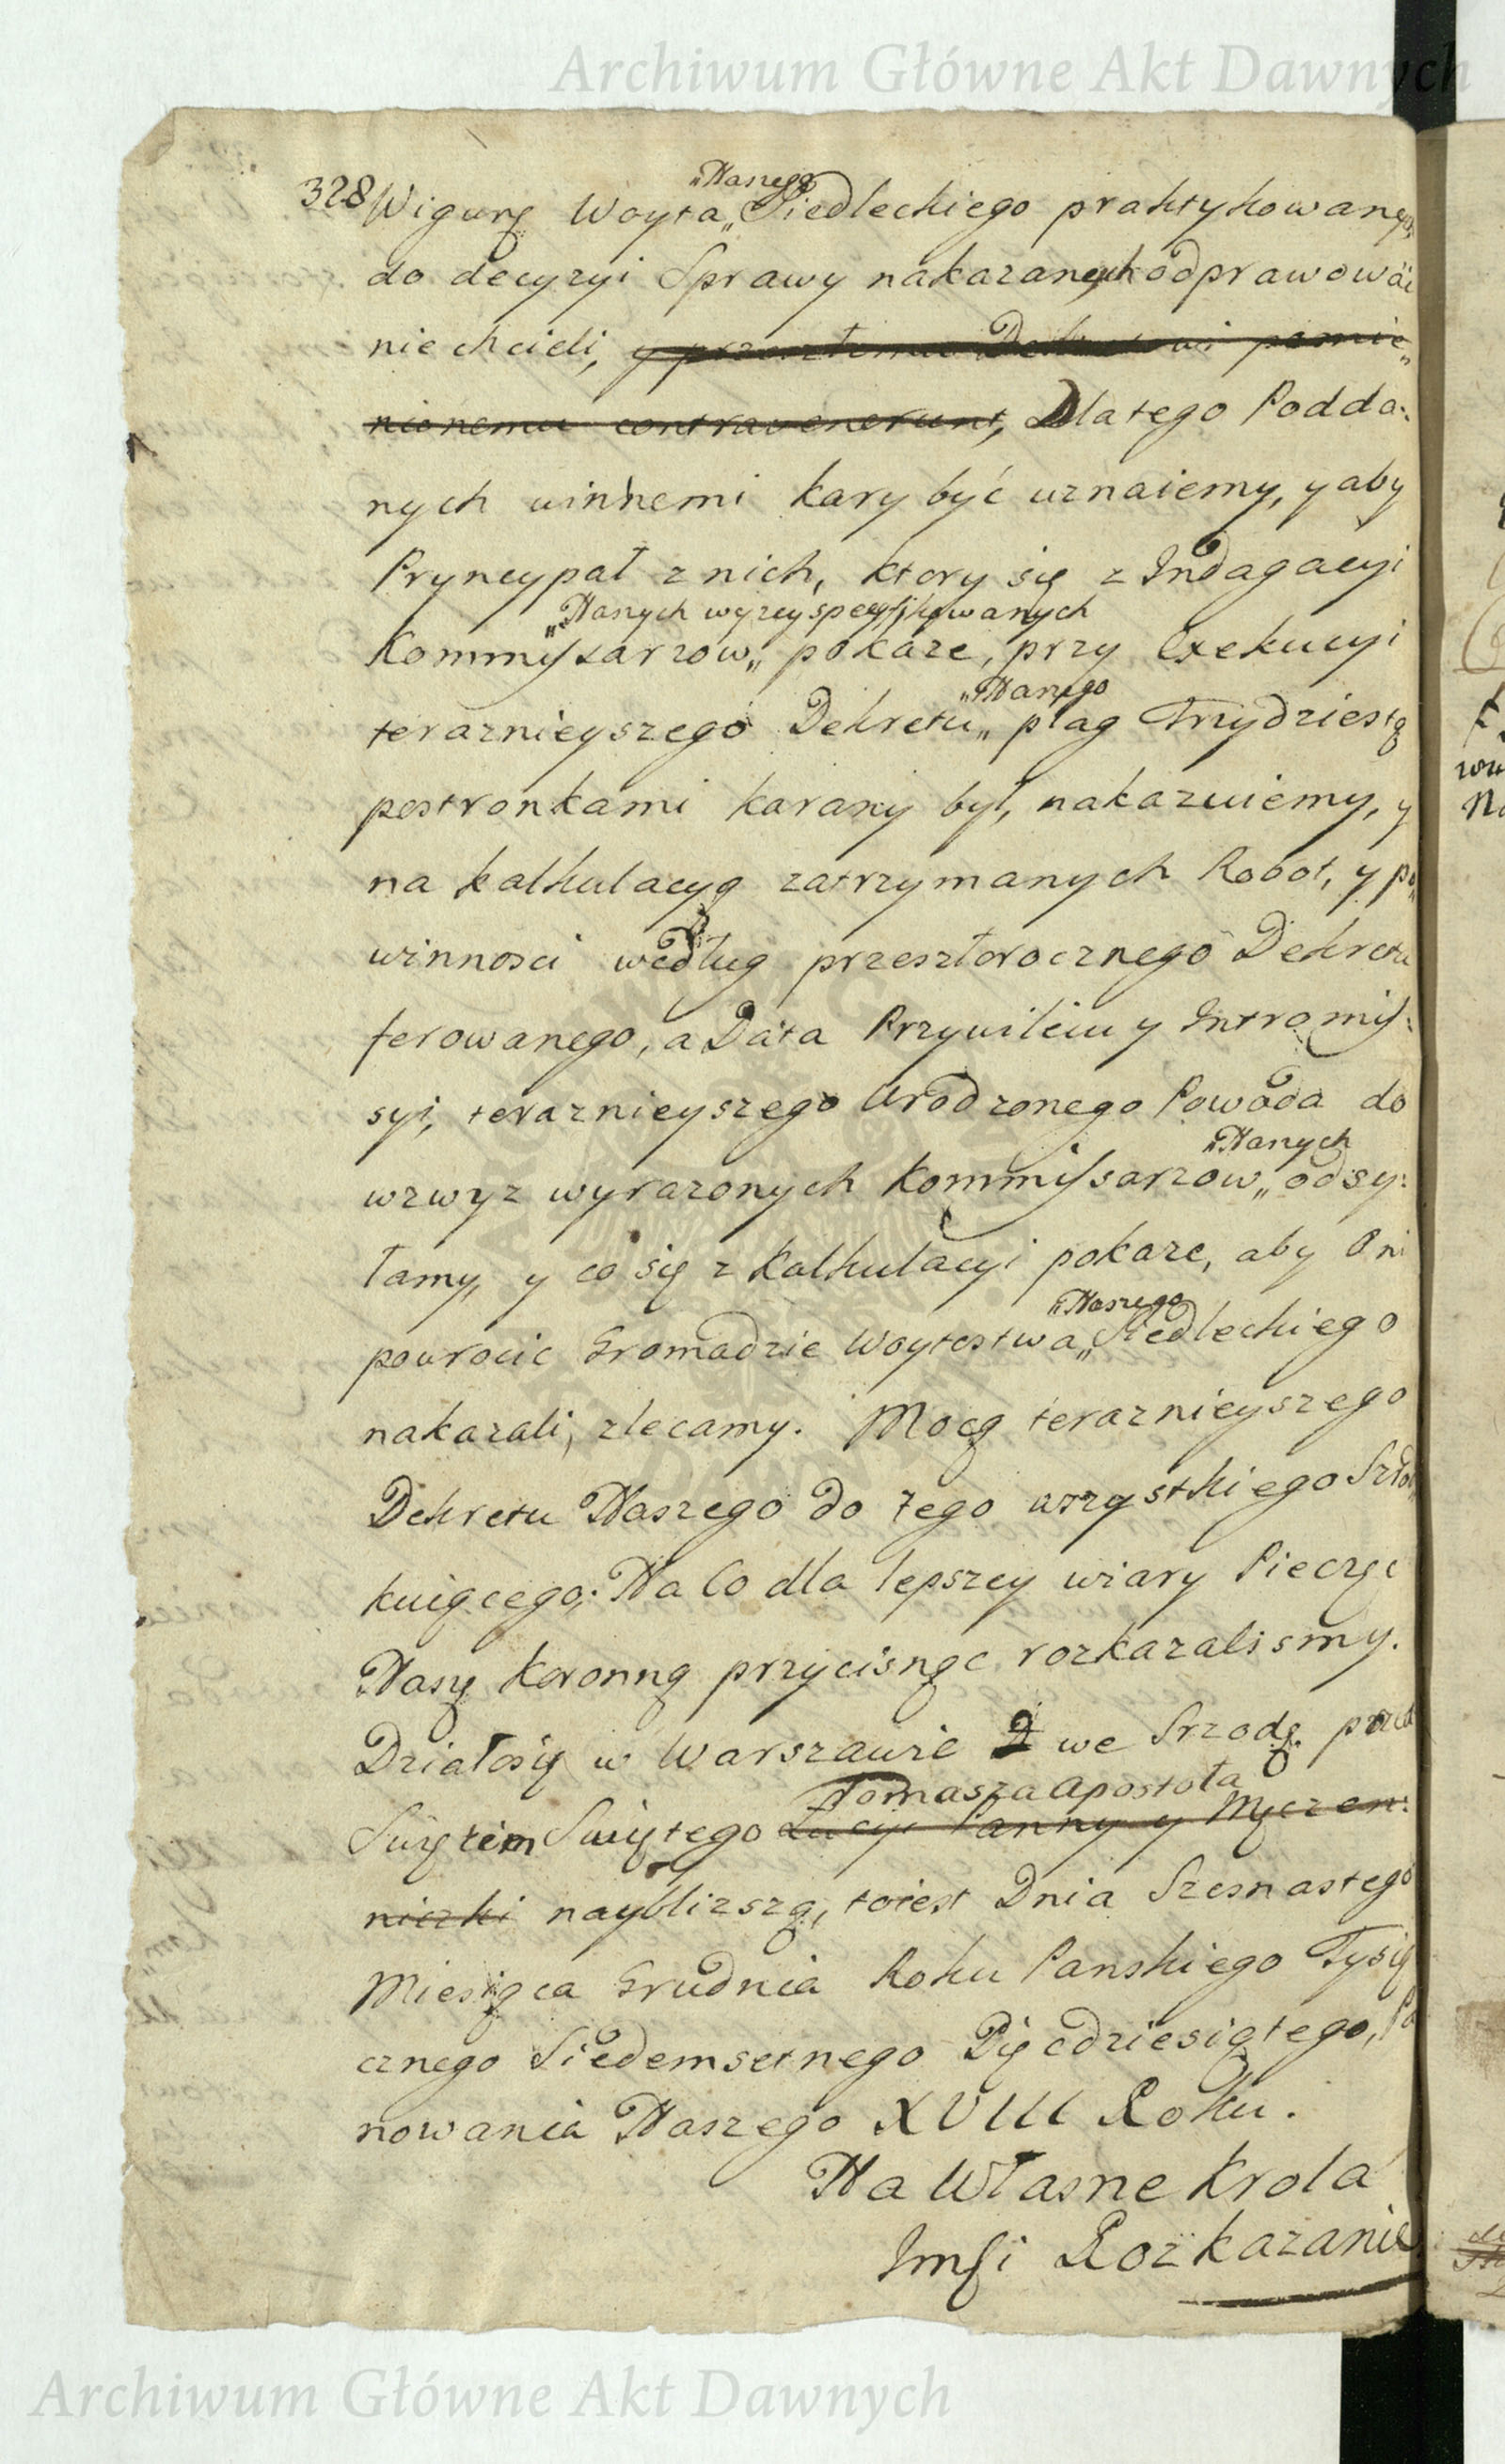 Archiwum Główne Akt Dawnych
328
„Naszego
Wigurę Woyta„ Siedleckiego praktykowanego,
do decyzyi Sprawy nakazanych odprawować
nie chcieli, y przeszłemu Dekretowi pomie„
nionemu contravenerunt, Dlatego Podda„
nych winnemi kary być uznaiemy, y aby
Pryncypał z nich, ktory się z Indagacyi
„Nanych wyżey specyfikowanych
Kommissarzow„ pokaże, przy Exekucyi
„Nanego
teraznieyszego Dekretu„ plag Trzydziestą
postronkami karany był, nakazuiemy, y
na kalkulacyą zatrzymanych Robot, y po„
winnosci według przeszłorocznego Dekretu
ferowanego, a Data Przywileiu y Intromis„
syi, teraznieyszego Urodzonego Powoda do
„Nanych
wzwyz wyrazonych Kommissarzow„ odsy„
łamy, y co się z Kalkulacyi pokaze, aby Oni
„Naszego
powrocic Gromadzie Woytostwa„ Siedleckiego
nakazali, zlecamy. Mocą teraznieyszego
Dekretu Naszego do tego wszystkiego
kuiącego; Na Co dla lepszey wiary Pieczęc
Naszą Koronną przycisnąc rozkazalismy.
Działosię w Warszawie we Srzodę przed
Tomasza Apostoła
Swiętem Swiętego Łucyi Panny y Męczen„
niczki naybliższą, toiest Dnia Szesnastego
Miesiąca Grudnia Roku Panskiego Tysią
cznego Siedemsetnego Pięcdziesiątego, Pa
nowania Naszego XVIII Roku.
Na Własne Krola
Jmsi Rozkazanie
Archiwum Główne Akt Dawnych